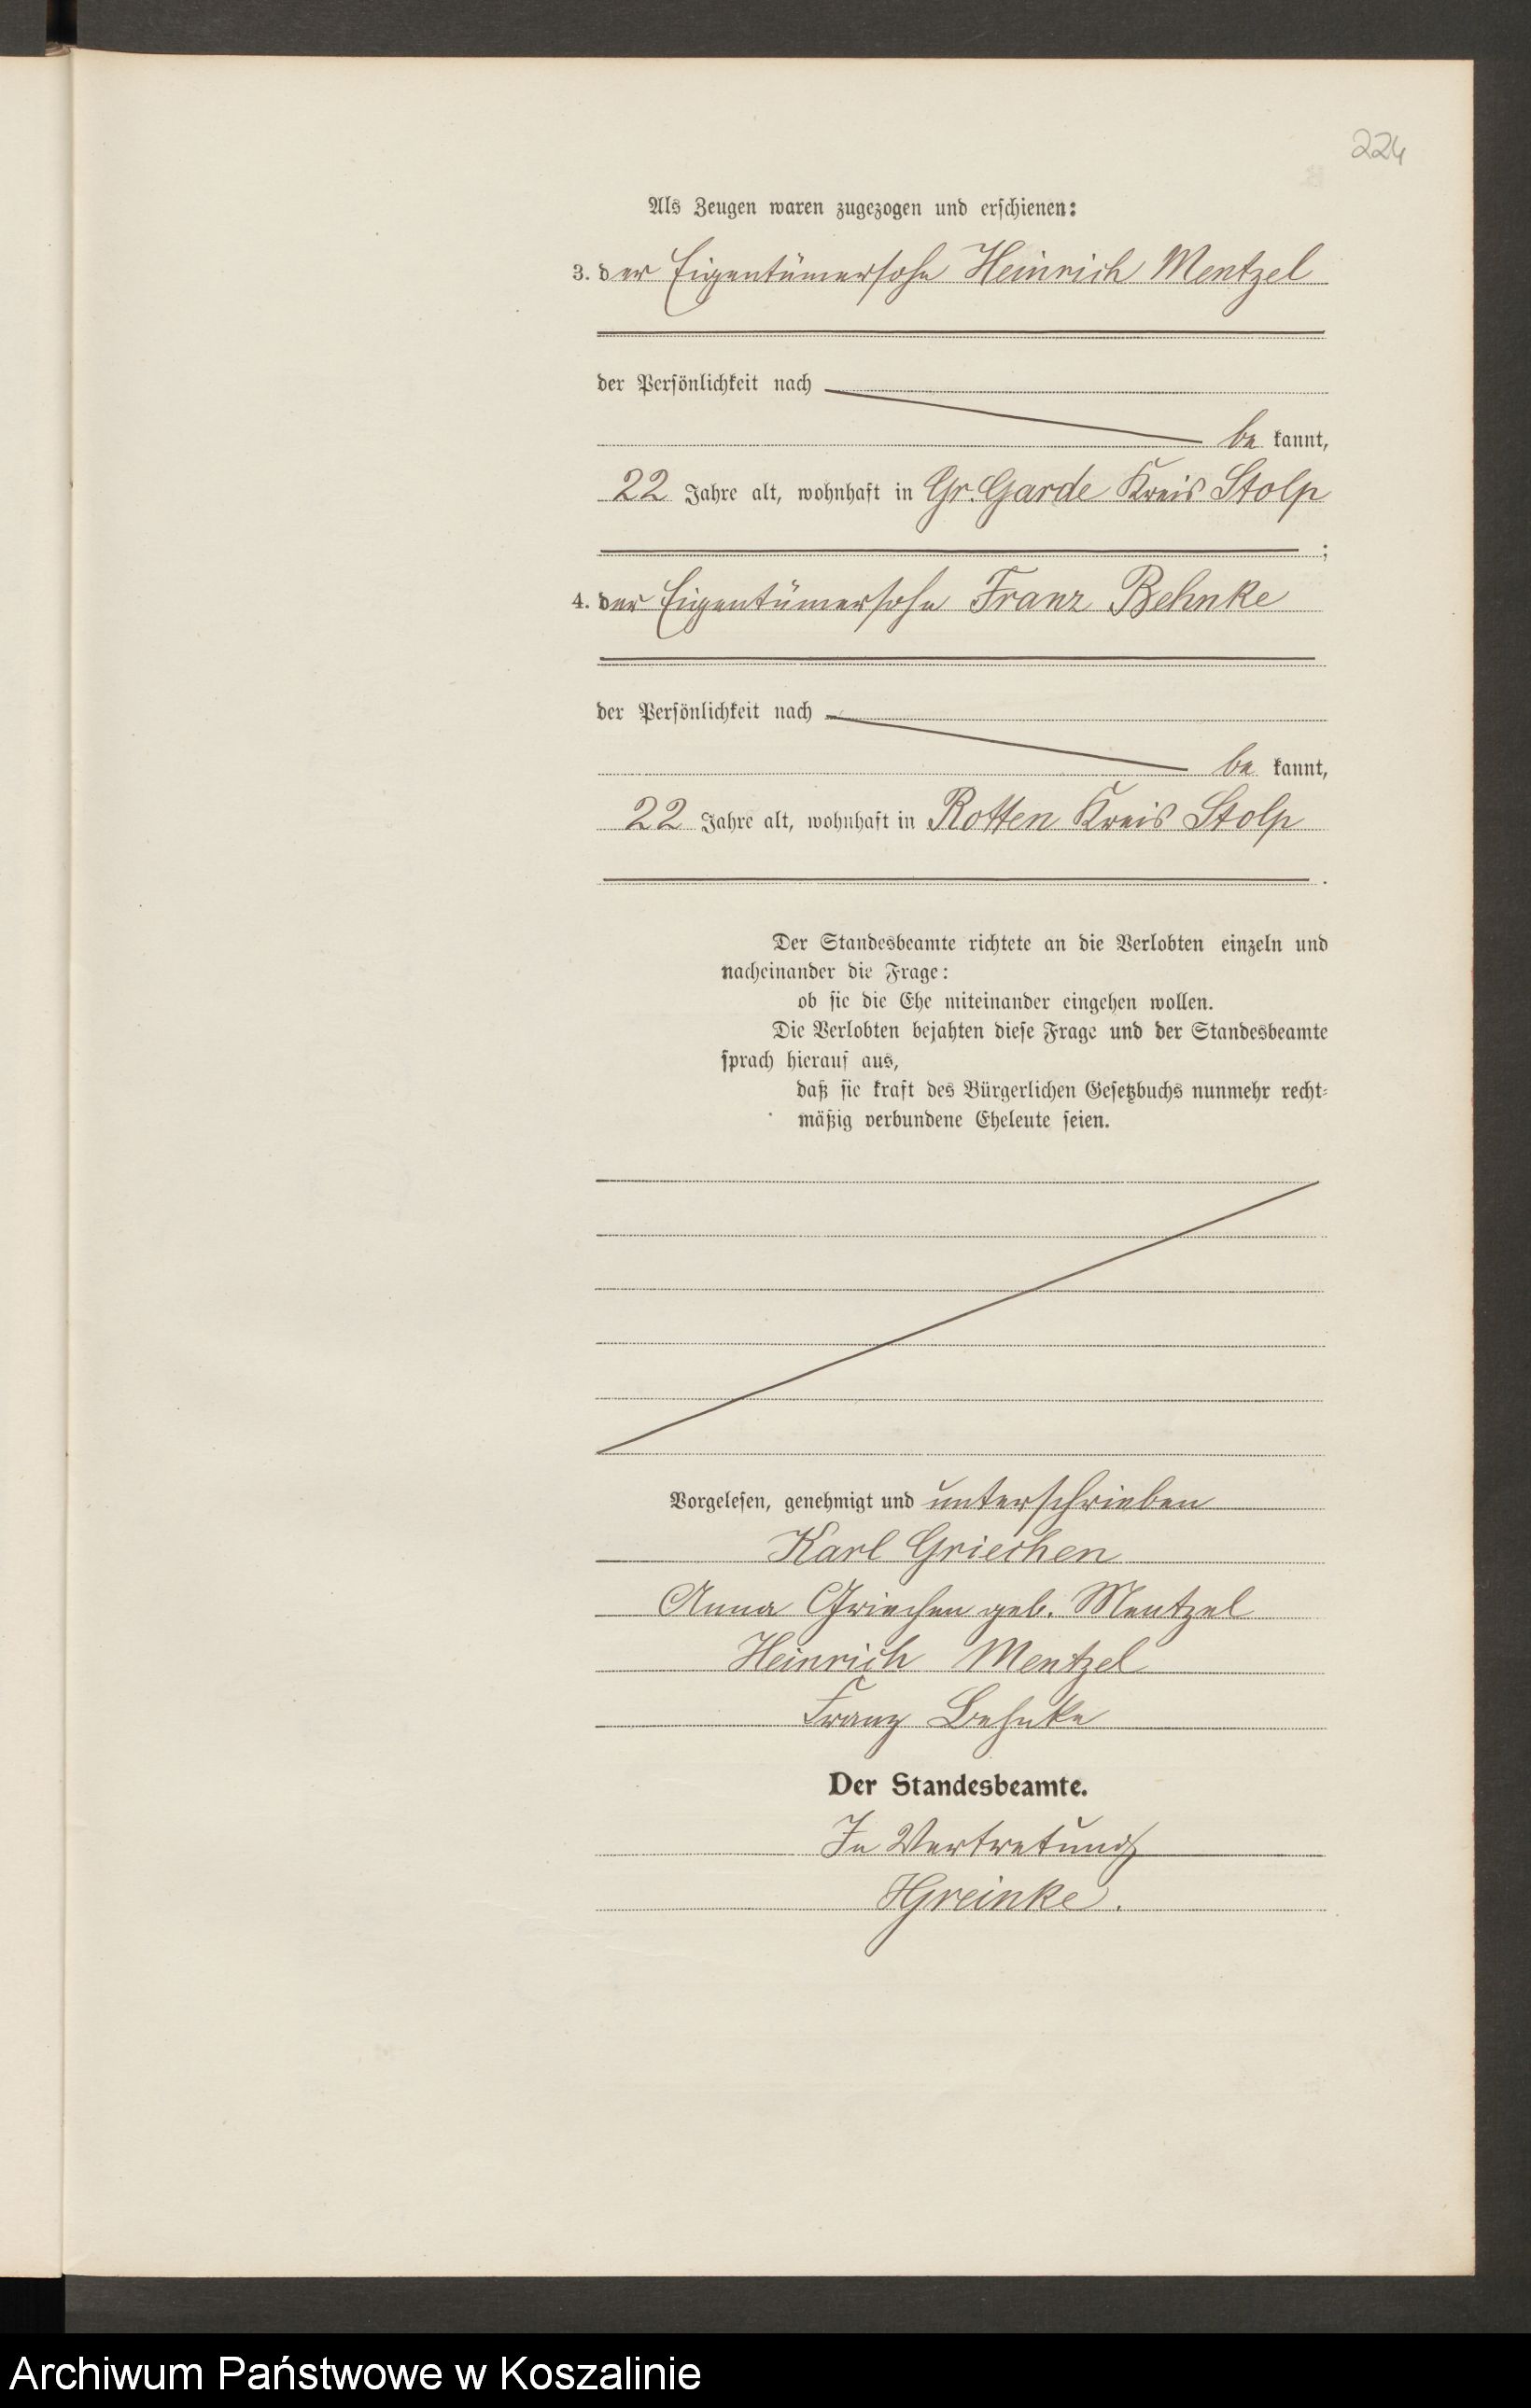 224
Als Zeugen waren zugezogen und erschienen:
3. der Eigentümersohn Heinrich Mentzel
der Persönlichkeit nach
be kannt,
22 Jahre alt, wohnhaft in Gr. Garde Kreis Stolp
;
4. der Eigentümersohn Franz Behnke
der Persönlichkeit nach
be kannt,
22 Jahre alt, wohnhaft in Rotten Kreis Stolp
.
Der Standesbeamte richtete an die Verlobten einzeln und
nacheinander die Frage:
ob sie die Ehe miteinander eingehen wollen.
Die Verlobten bejahten diese Frage und der Standesbeamte
sprach hierauf aus,
daß sie kraft des Bürgerlichen Gesetzbuchs nunmehr recht-
mäßig verbundene Eheleute seien.
Vorgelesen, genehmigt und unterschrieben
Karl Griechen
Anna Griechen geb. Mentzel
Heinrich Mentzel
Franz Behnke
Der Standesbeamte.
In Vertretung
HGreinke.
Archiwum Państwowe w Koszalinie